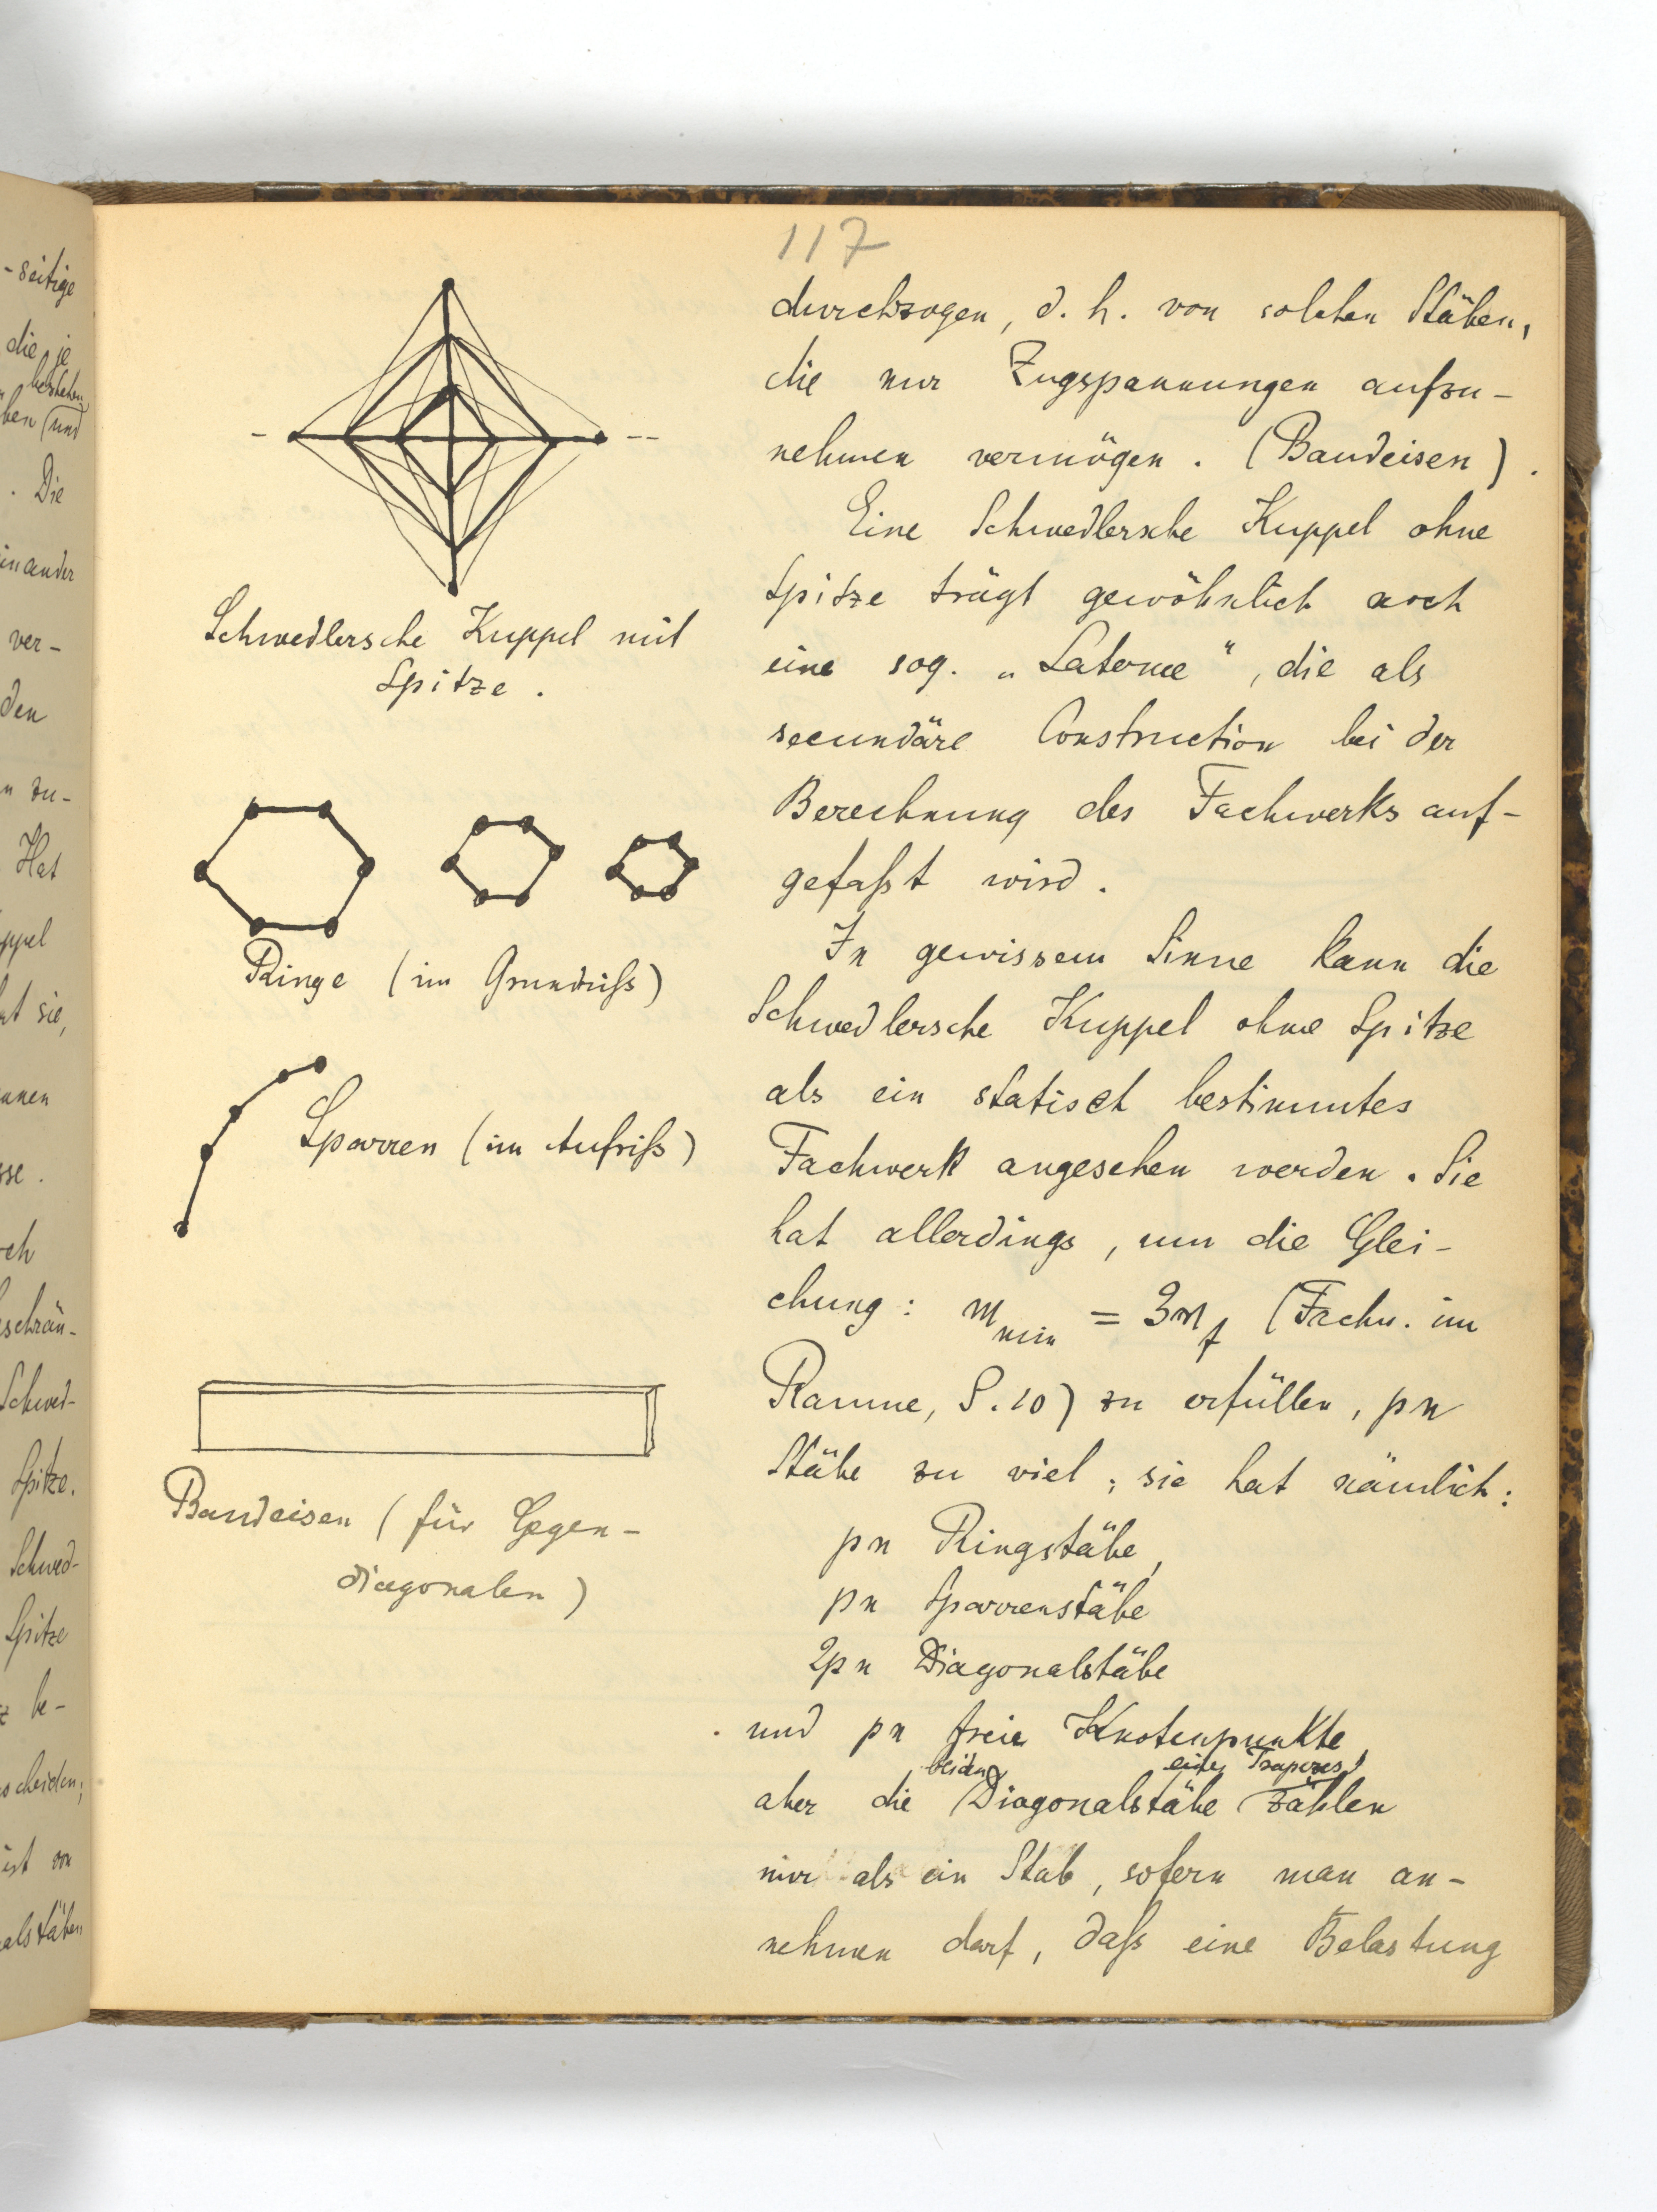 -seitige
die je
bestehen
ben (und
. Die
einander
ver-
den
n zu-
Hat
ppel
at sie,
nnen
sse .
rch
beschrän-
Schwed-
Spitze.
Schwed-
Spitze
z be-
scheiden;
ist von
alstäben
117
Schwedlersche Kuppel mit
Spitze .
Ringe (im Grundriß)
Sparren (im Aufriß)
Bandeisen (für Gegen-
diagonalen)
durchzogen, d. h. von solchen Stäben,
die nur Zugspannungen aufzu-
nehmen vermögen . (Bandeisen) .
Eine Schwedlersche Kuppel ohne
Spitze trägt gewöhnlich noch
eine sog. „Laterne“, die als
secundäre Construction bei der
Berechnung des Fachwerks auf-
gefaßt wird .
In gewissem Sinne kann die
Schwedlersche Kuppel ohne Spitze
als ein statisch bestimmtes
Fachwerk angesehen werden . Sie
hat allerdings, um die Glei-
chung: m_min = 3n_f (Fachw. im
Raume, S. 10) zu erfüllen, pn
Stäbe zu viel ; sie hat nämlich :
pn Ringstäbe,
pn Sparrenstäbe
2pn Diagonalstäbe
und pn freie Knotenpunkte,
beiden eines Trapezes
aber die Diagonalstäbe zählen
nur als ein Stab, sofern man an-
nehmen darf, daß eine Belastung